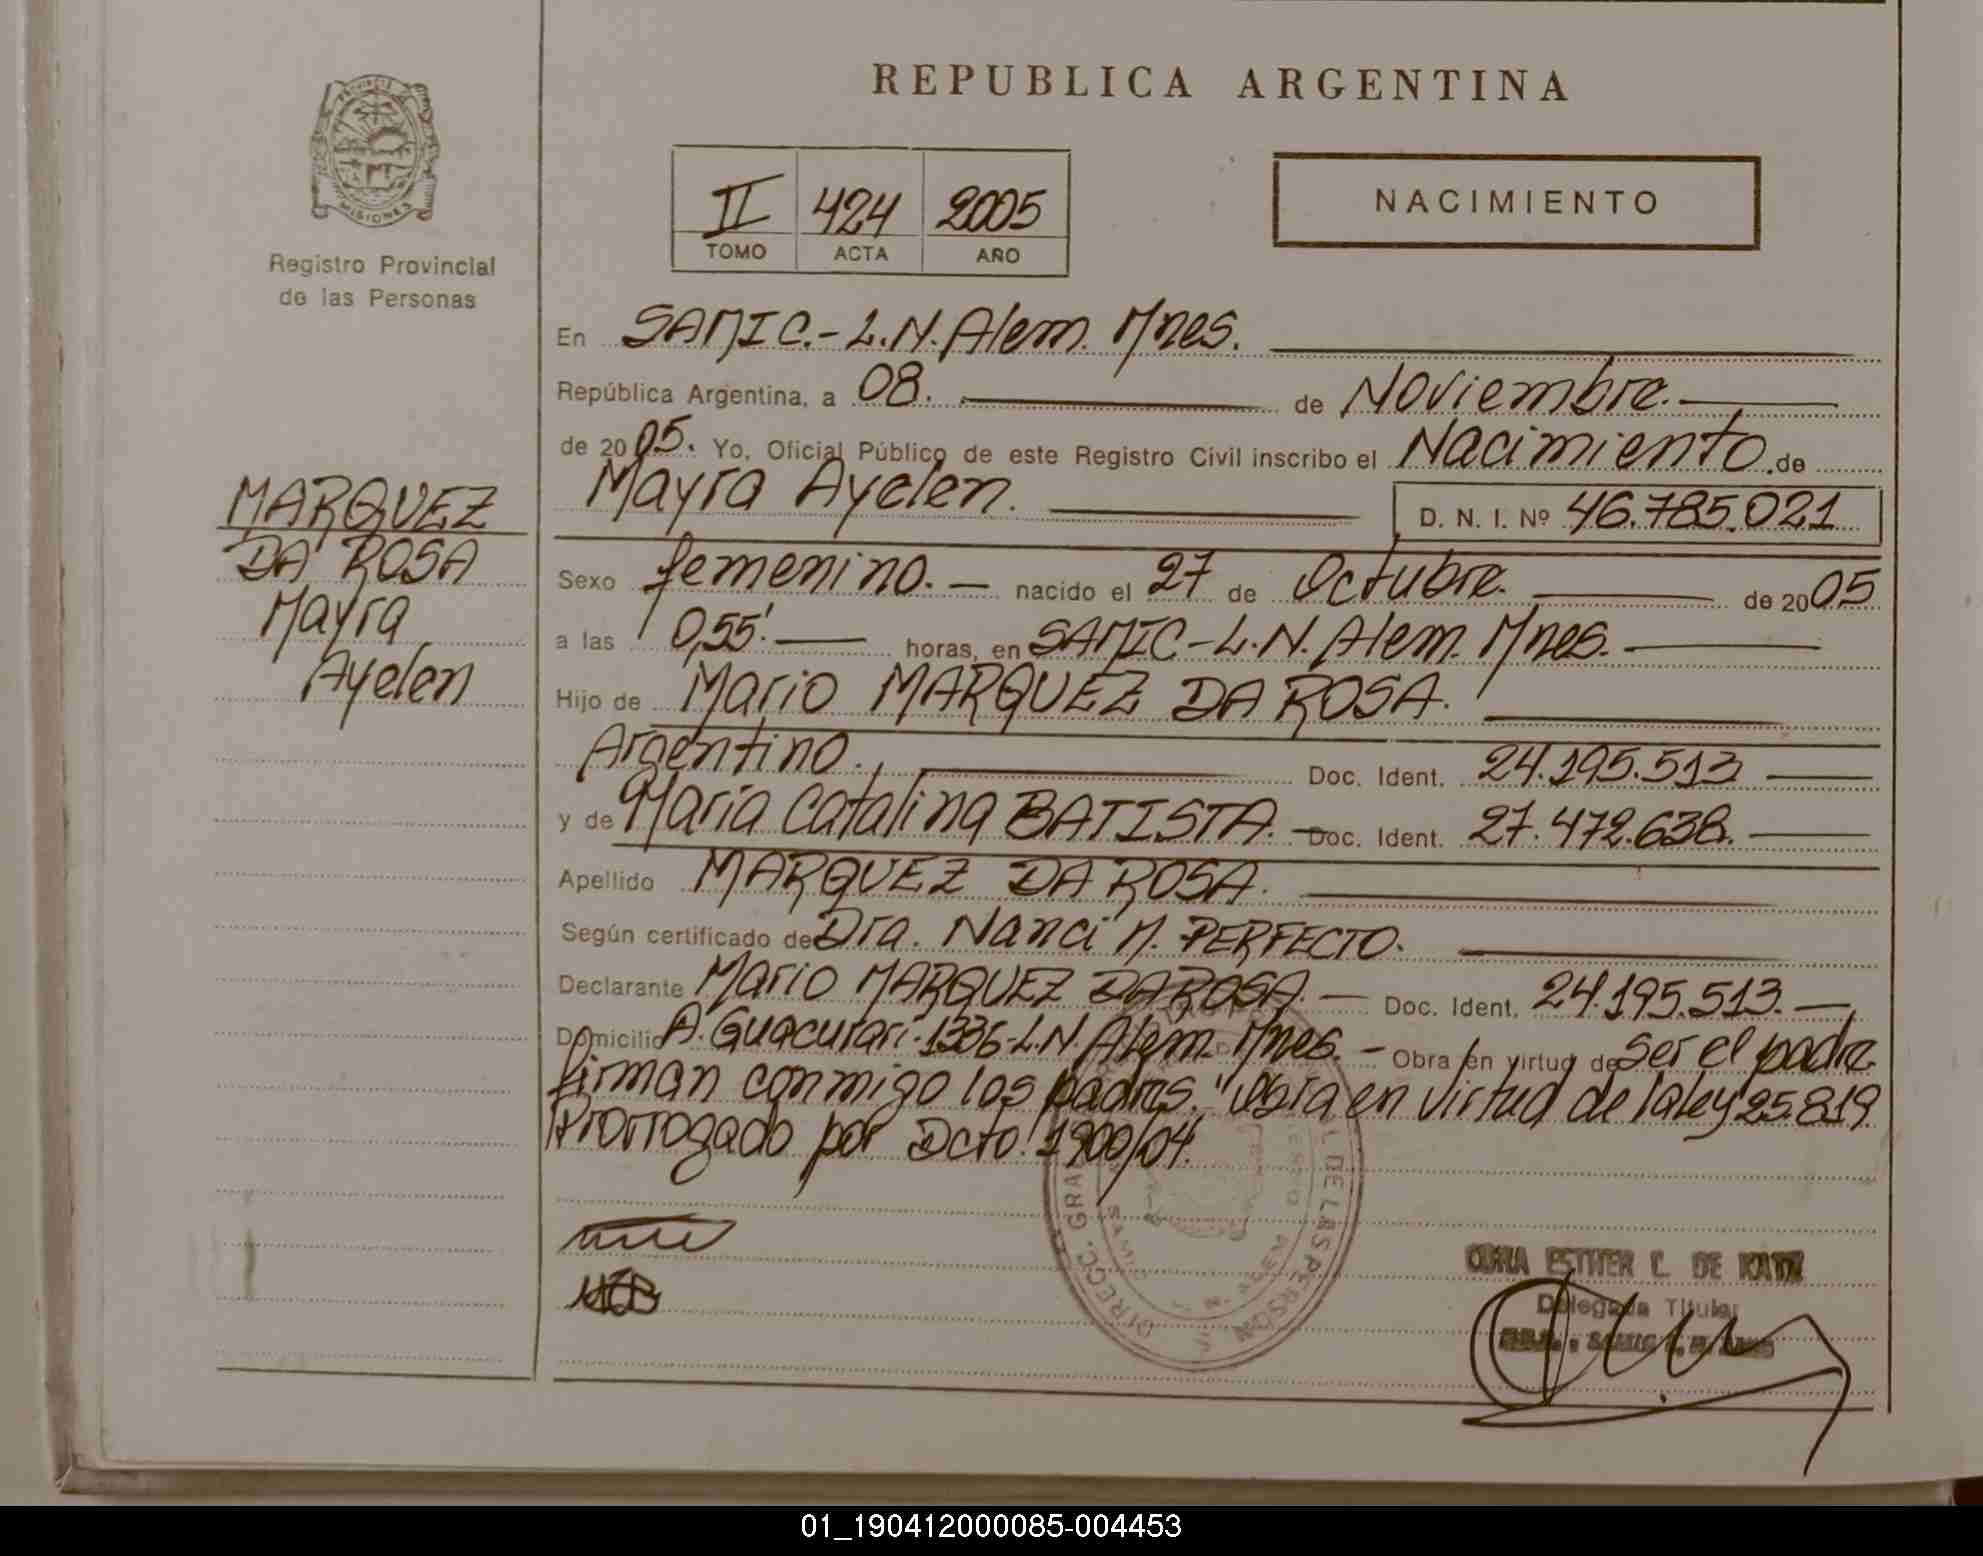 REPUBLICA ARGENTINA
PROVINCIA
MISIONES
Registro Provincial
de las Personas
II 424 2005
TOMO ACTA AÑO
NACIMIENTO
En SAMIC.- L.N. Alem. Mnes.
República Argentina, a 08. de Noviembre.
de 2005. Yo, Oficial Público de este Registro Civil inscribo el Nacimiento. de
Mayra Ayelen. D. N. I. Nº 46.785.021
MARQUEZ
DA ROSA
Mayra
Ayelen
Sexo femenino. nacido el 27 de Octubre. de 2005
a las 0,55' horas, en SAMIC - L.N. Alem. Mnes.
Hijo de Mario MARQUEZ DA ROSA.
Argentino. Doc. Ident. 24.195.513
y de Maria Catalina BATISTA. Doc. Ident. 27.472.638.
Apellido MARQUEZ DA ROSA.
Según certificado de Dra. Nanci M. PERFECTO.
Declarante Mario MARQUEZ DA ROSA. Doc. Ident. 24.195.513.
Domicilio A. Guacurari. 1336 - L.N. Alem. Mnes. - Obra en virtud de ser el padre
firman conmigo los padres. "Obra en virtud de la ley 25.819
Prorrogado por Dcto. 1900/04.
DIRECC. GRAL DE LAS PERSONAS
SAMIC L. N. ALEM
ESTHER C. DE KATZ
Delegada Titular
01_190412000085-004453